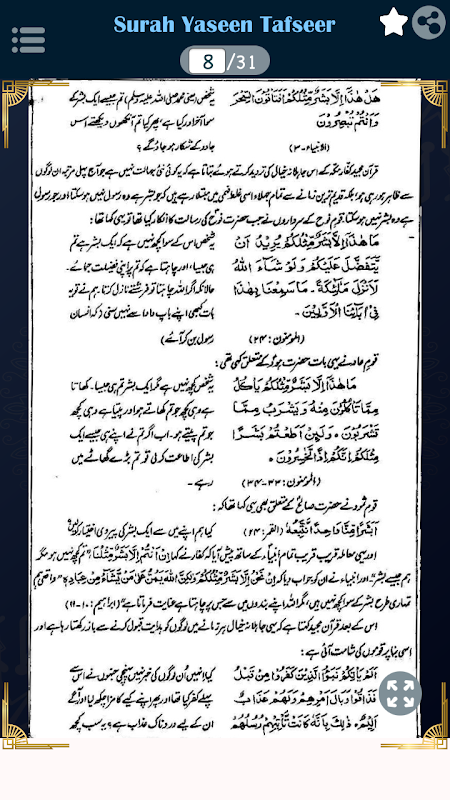 Surah Yaseen Tafseer
8/31
هَلْ هٰذَآ اِلَّا بَشَرٌ مِّثْلُكُمْ اَفَتَاْتُوْنَ السِّحْرَ یہ شخص (یعنی محمد صلی اللہ علیہ وسلم) تم جیسے ایک بشر کے
وَاَنْتُمْ تُبْصِرُوْنَ سوا آخر اور کیا ہے، پھر کیا تم آنکھوں دیکھتے اس
(الانبیاء-۳) جادو کے شکار ہو جاؤ گے؟
قرآن مجید کفارِ مکہ کے اس جاہلانہ خیال کی تردید کرتے ہوئے بتاتا ہے کہ یہ کوئی نئی جہالت نہیں ہے جو آج پہلی مرتبہ ان لوگوں
سے ظاہر ہو رہی ہو، بلکہ قدیم ترین زمانے سے تمام جہلاء اسی غلط فہمی میں مبتلا رہے ہیں کہ جو بشر ہے وہ رسول نہیں ہو سکتا اور جو رسول
ہے وہ بشر نہیں ہو سکتا۔ قومِ نوح کے سرداروں نے جب حضرت نوحؑ کی رسالت کا انکار کیا تھا تو یہی کہا تھا:
مَا هٰذَآ اِلَّا بَشَرٌ مِّثْلُكُمْ يُرِيْدُ اَنْ یہ شخص اس کے سوا کچھ نہیں ہے کہ ایک بشر ہے تم
يَّتَفَضَّلَ عَلَيْكُمْ وَلَوْ شَآءَ اللّٰهُ ہی جیسا، اور چاہتا ہے کہ تم پر اپنی فضیلت جمائے۔
لَاَنْزَلَ مَلٰٓئِكَةً۔ مَا سَمِعْنَا بِهٰذَا حالانکہ اگر اللہ چاہتا تو فرشتے نازل کرتا، ہم نے تو یہ
فِيْٓ اٰبَآئِنَا الْاَوَّلِيْنَ۔ بات کبھی اپنے باپ دادا سے نہیں سنی (کہ انسان
(المومنون: ۲۴) رسول بن کر آئے)
قومِ عاد نے یہی بات حضرت ہودؑ کے متعلق کہی تھی:
مَا هٰذَآ اِلَّا بَشَرٌ مِّثْلُكُمْ يَاْكُلُ یہ شخص کچھ نہیں ہے مگر ایک بشر تم ہی جیسا۔ کھاتا
مِمَّا تَاْكُلُوْنَ مِنْهُ وَيَشْرَبُ مِمَّا ہے وہی کچھ جو تم کھاتے ہو اور پیتا ہے وہی کچھ
تَشْرَبُوْنَ۔ وَلَئِنْ اَطَعْتُمْ بَشَرًا جو تم پیتے ہو۔ اب اگر تم نے اپنے ہی جیسے ایک
مِّثْلَكُمْ اِنَّكُمْ اِذًا لَّخٰسِرُوْنَ۔ بشر کی اطاعت کر لی تو تم بڑے گھاٹے میں
(المومنون: ۳۳-۳۴) رہے۔
قومِ ثمود نے حضرت صالحؑ کے متعلق بھی یہی کہا تھا کہ:
اَبَشَرًا مِّنَّا وَاحِدًا نَّتَّبِعُهٗ (القمر: ۲۴) کیا ہم اپنے میں سے ایک بشر کی پیروی اختیار کر لیں
اور یہی معاملہ قریب قریب تمام انبیاء کے ساتھ پیش آیا کہ کفار نے کہا اِنْ اَنْتُمْ اِلَّا بَشَرٌ مِّثْلُنَا "تم کچھ نہیں ہو مگر
ہم جیسے بشر" اور انبیاء نے ان کو جواب دیا کہ اِنْ نَّحْنُ اِلَّا بَشَرٌ مِّثْلُكُمْ وَلٰكِنَّ اللّٰهَ يَمُنُّ عَلٰى مَنْ يَّشَآءُ مِنْ عِبَادِهٖ "واقعی ہم
تمہاری طرح بشر کے سوا کچھ نہیں ہیں، مگر اللہ اپنے بندوں میں سے جس پر چاہتا ہے عنایت فرماتا ہے" (ابراہیم: ۱۰-۱۱)
اس کے بعد قرآن مجید کہتا ہے کہ یہی جاہلانہ خیال ہر زمانے میں لوگوں کو ہدایت قبول کرنے سے باز رکھتا رہا ہے اور
اسی بنا پر قوموں کی شامت آئی ہے:
اَلَمْ يَاْتِكُمْ نَبَؤُا الَّذِيْنَ كَفَرُوْا مِنْ قَبْلُ کیا انہیں ان لوگوں کی خبر نہیں پہنچی جنہوں نے اس سے
فَذَاقُوْا وَبَالَ اَمْرِهِمْ وَلَهُمْ عَذَابٌ پہلے کفر کیا تھا اور پھر اپنے کیے کا مزا چکھ لیا اور آگے
اَلِيْمٌ۔ ذٰلِكَ بِاَنَّهٗ كَانَتْ تَّاْتِيْهِمْ رُسُلُهُمْ ان کے لیے دردناک عذاب ہے؟ یہ سب کچھ